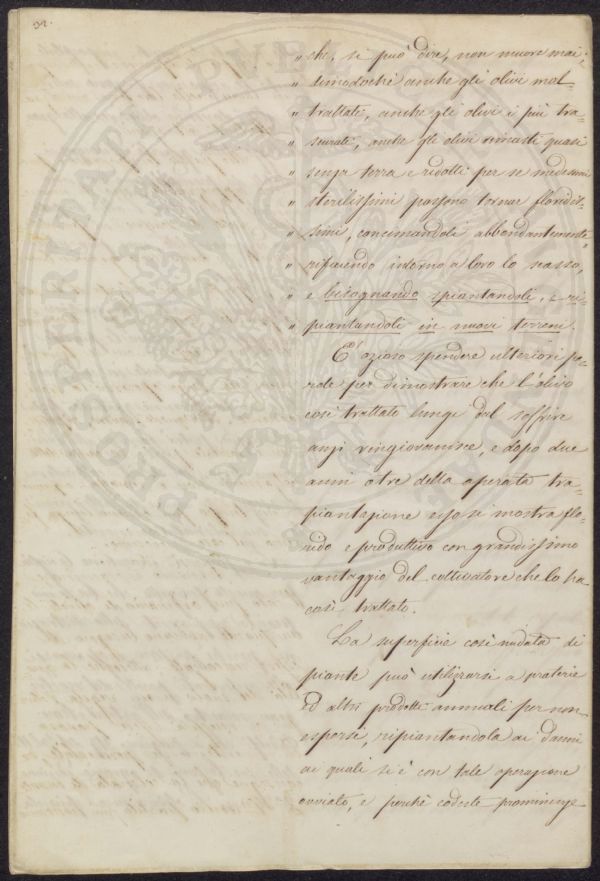 32.
" che, si può dire, non muore mai;
" dimodochè anche gli olivi mal-
" trattati, anche gli olivi i più tra-
" scurati, anche gli olivi rimasti quasi
" senza terra e ridotti per se medesimi
" sterilissimi possono tornar floridis-
" simi, concimandoli abbondantemente
" rifacendo intorno a loro lo scasso,
" e bisognando spiantandoli, e ri-
" piantandoli in nuovi terreni.
E' ozioso spendere ulteriori pa-
role per dimostrare che l'olivo
così trattato lungi dal soffrire
anzi ringiovanisce, e dopo due
anni o tre della operata tra-
piantazione esso si mostra flo-
rido e produttivo con grandissimo
vantaggio del coltivatore che lo ha
così trattato.
La superficie così nudata di
piante può utilizzarsi a praterie
ed altri prodotti annuali per non
esporse, ripiantandola ai danni
ai quali si è con tale operazione
ovviato, e perchè codeste prominenze
PROSPERITATI PVBLICAE